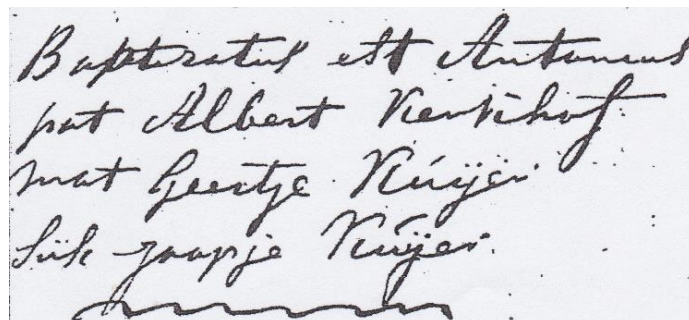 Baptizatus est Antonius
pat Albert Kerkhof
mat Geertje Kuijer
Sus Jaapje Kuijer